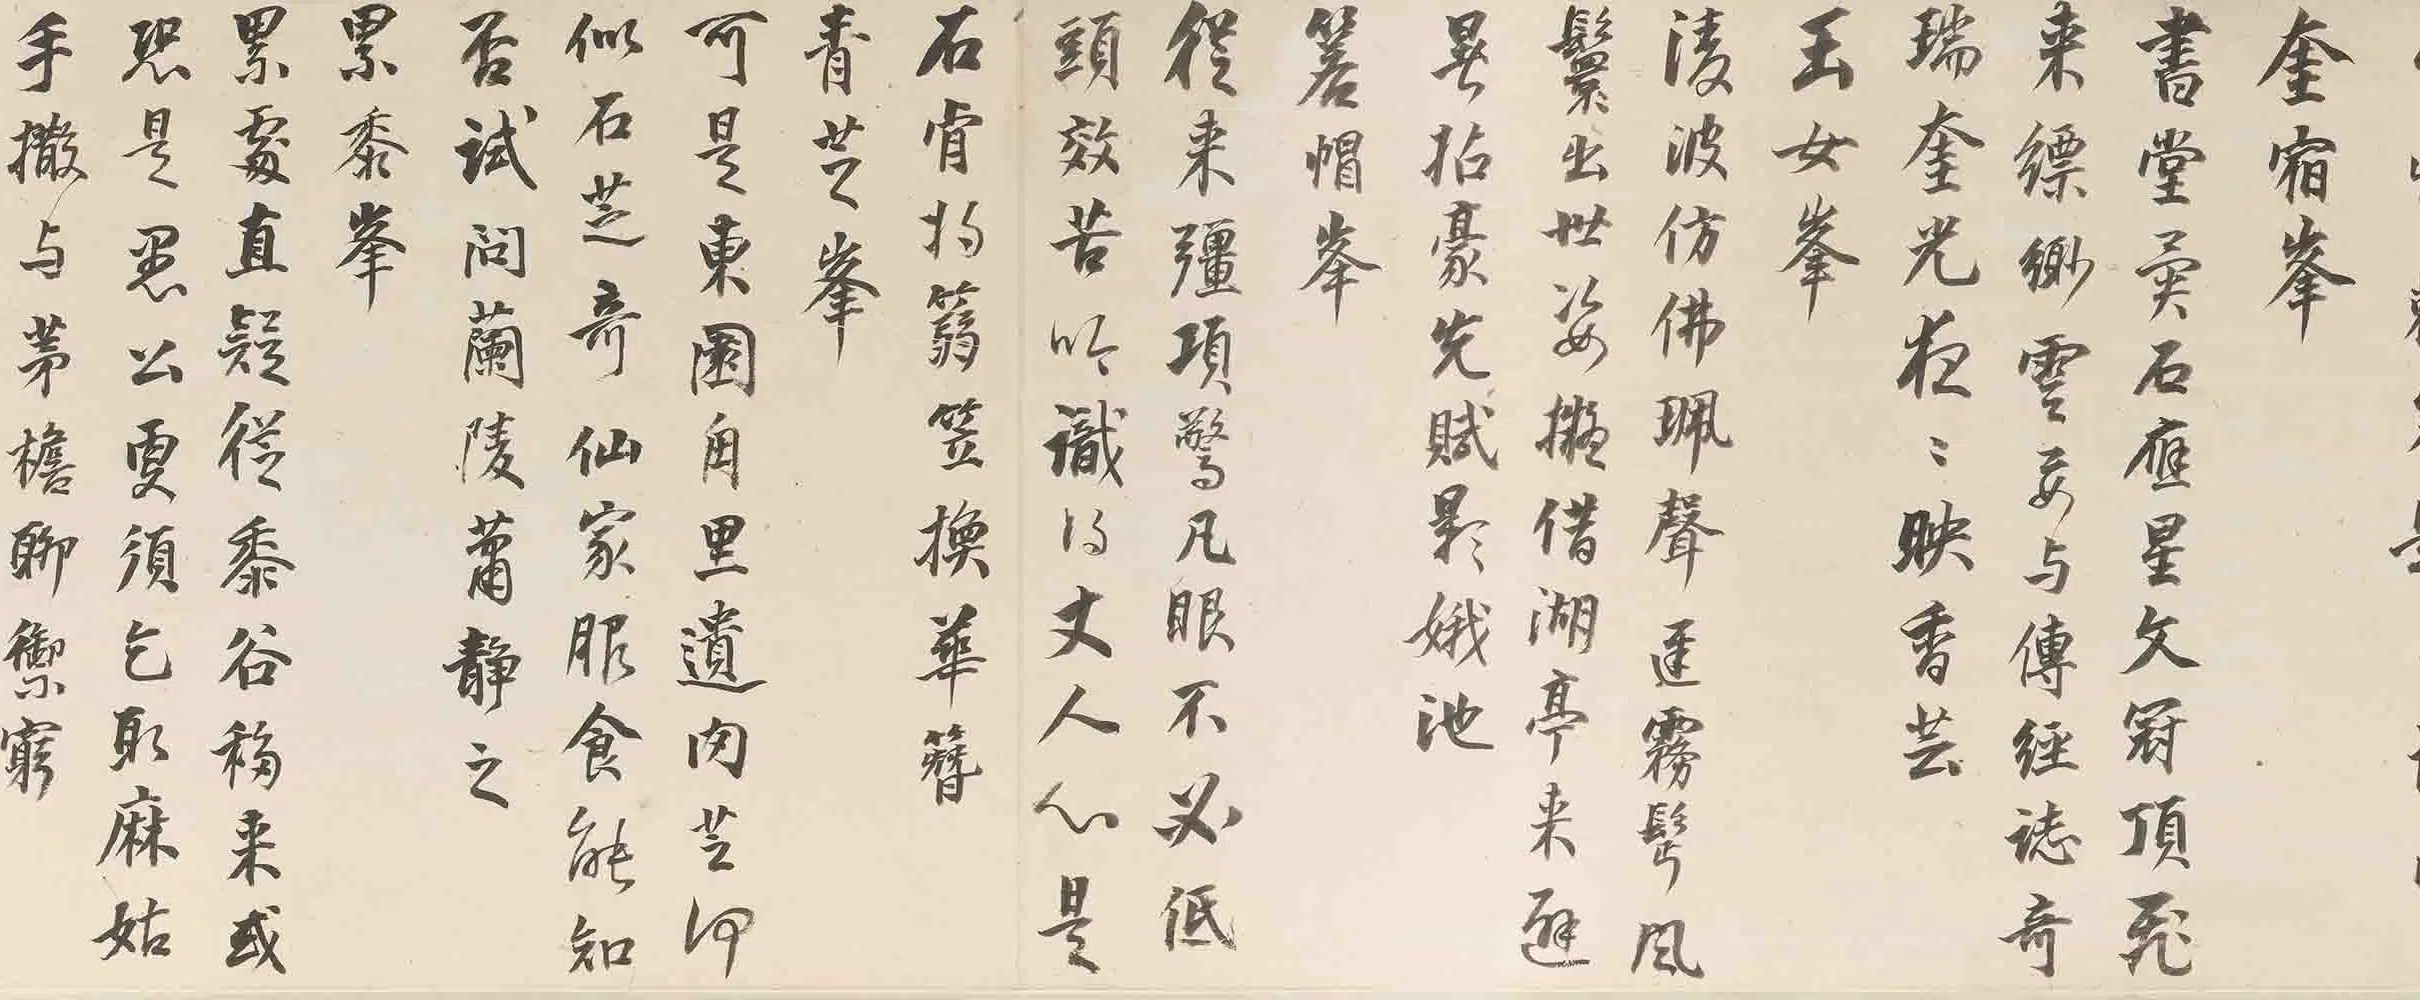 奎宿峯
書堂奠石應星文冠頂飛
来縹緲雲妥与傳經誌奇
瑞奎光夜〻映香芸
玉女峯
淩波仿佛珮聲遲霧髩風
鬟出世姿擬借湖亭来避
暑拈豪先賦影娥池
箬帽峯
從来彊項驚凡眼不必低
頭效苦吟識得丈人心是
石肯將篛笠換華簪
青芝峯
可是東園甪里遺肉芝何
似石芝奇仙家服食能知
否試問蘭陵蕭靜之
累黍峯
累處直疑從黍谷移来或
恐是愚公更須乞取麻姑
手撒与茅檐聊禦窮